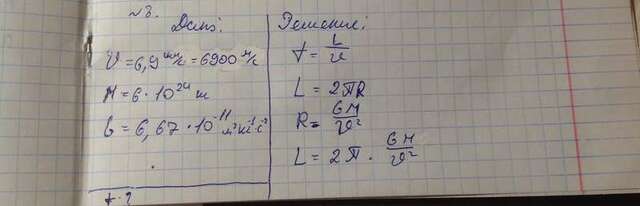 №3.
Дано:
υ = 6,9 км/с = 6900 м/с
M = 6 · 10²⁴ кг
G = 6,67 · 10⁻¹¹ м³кг⁻¹с⁻²
t - ?
Решение:
t = L/υ
L = 2πR
R = GM/υ²
L = 2π · GM/υ²